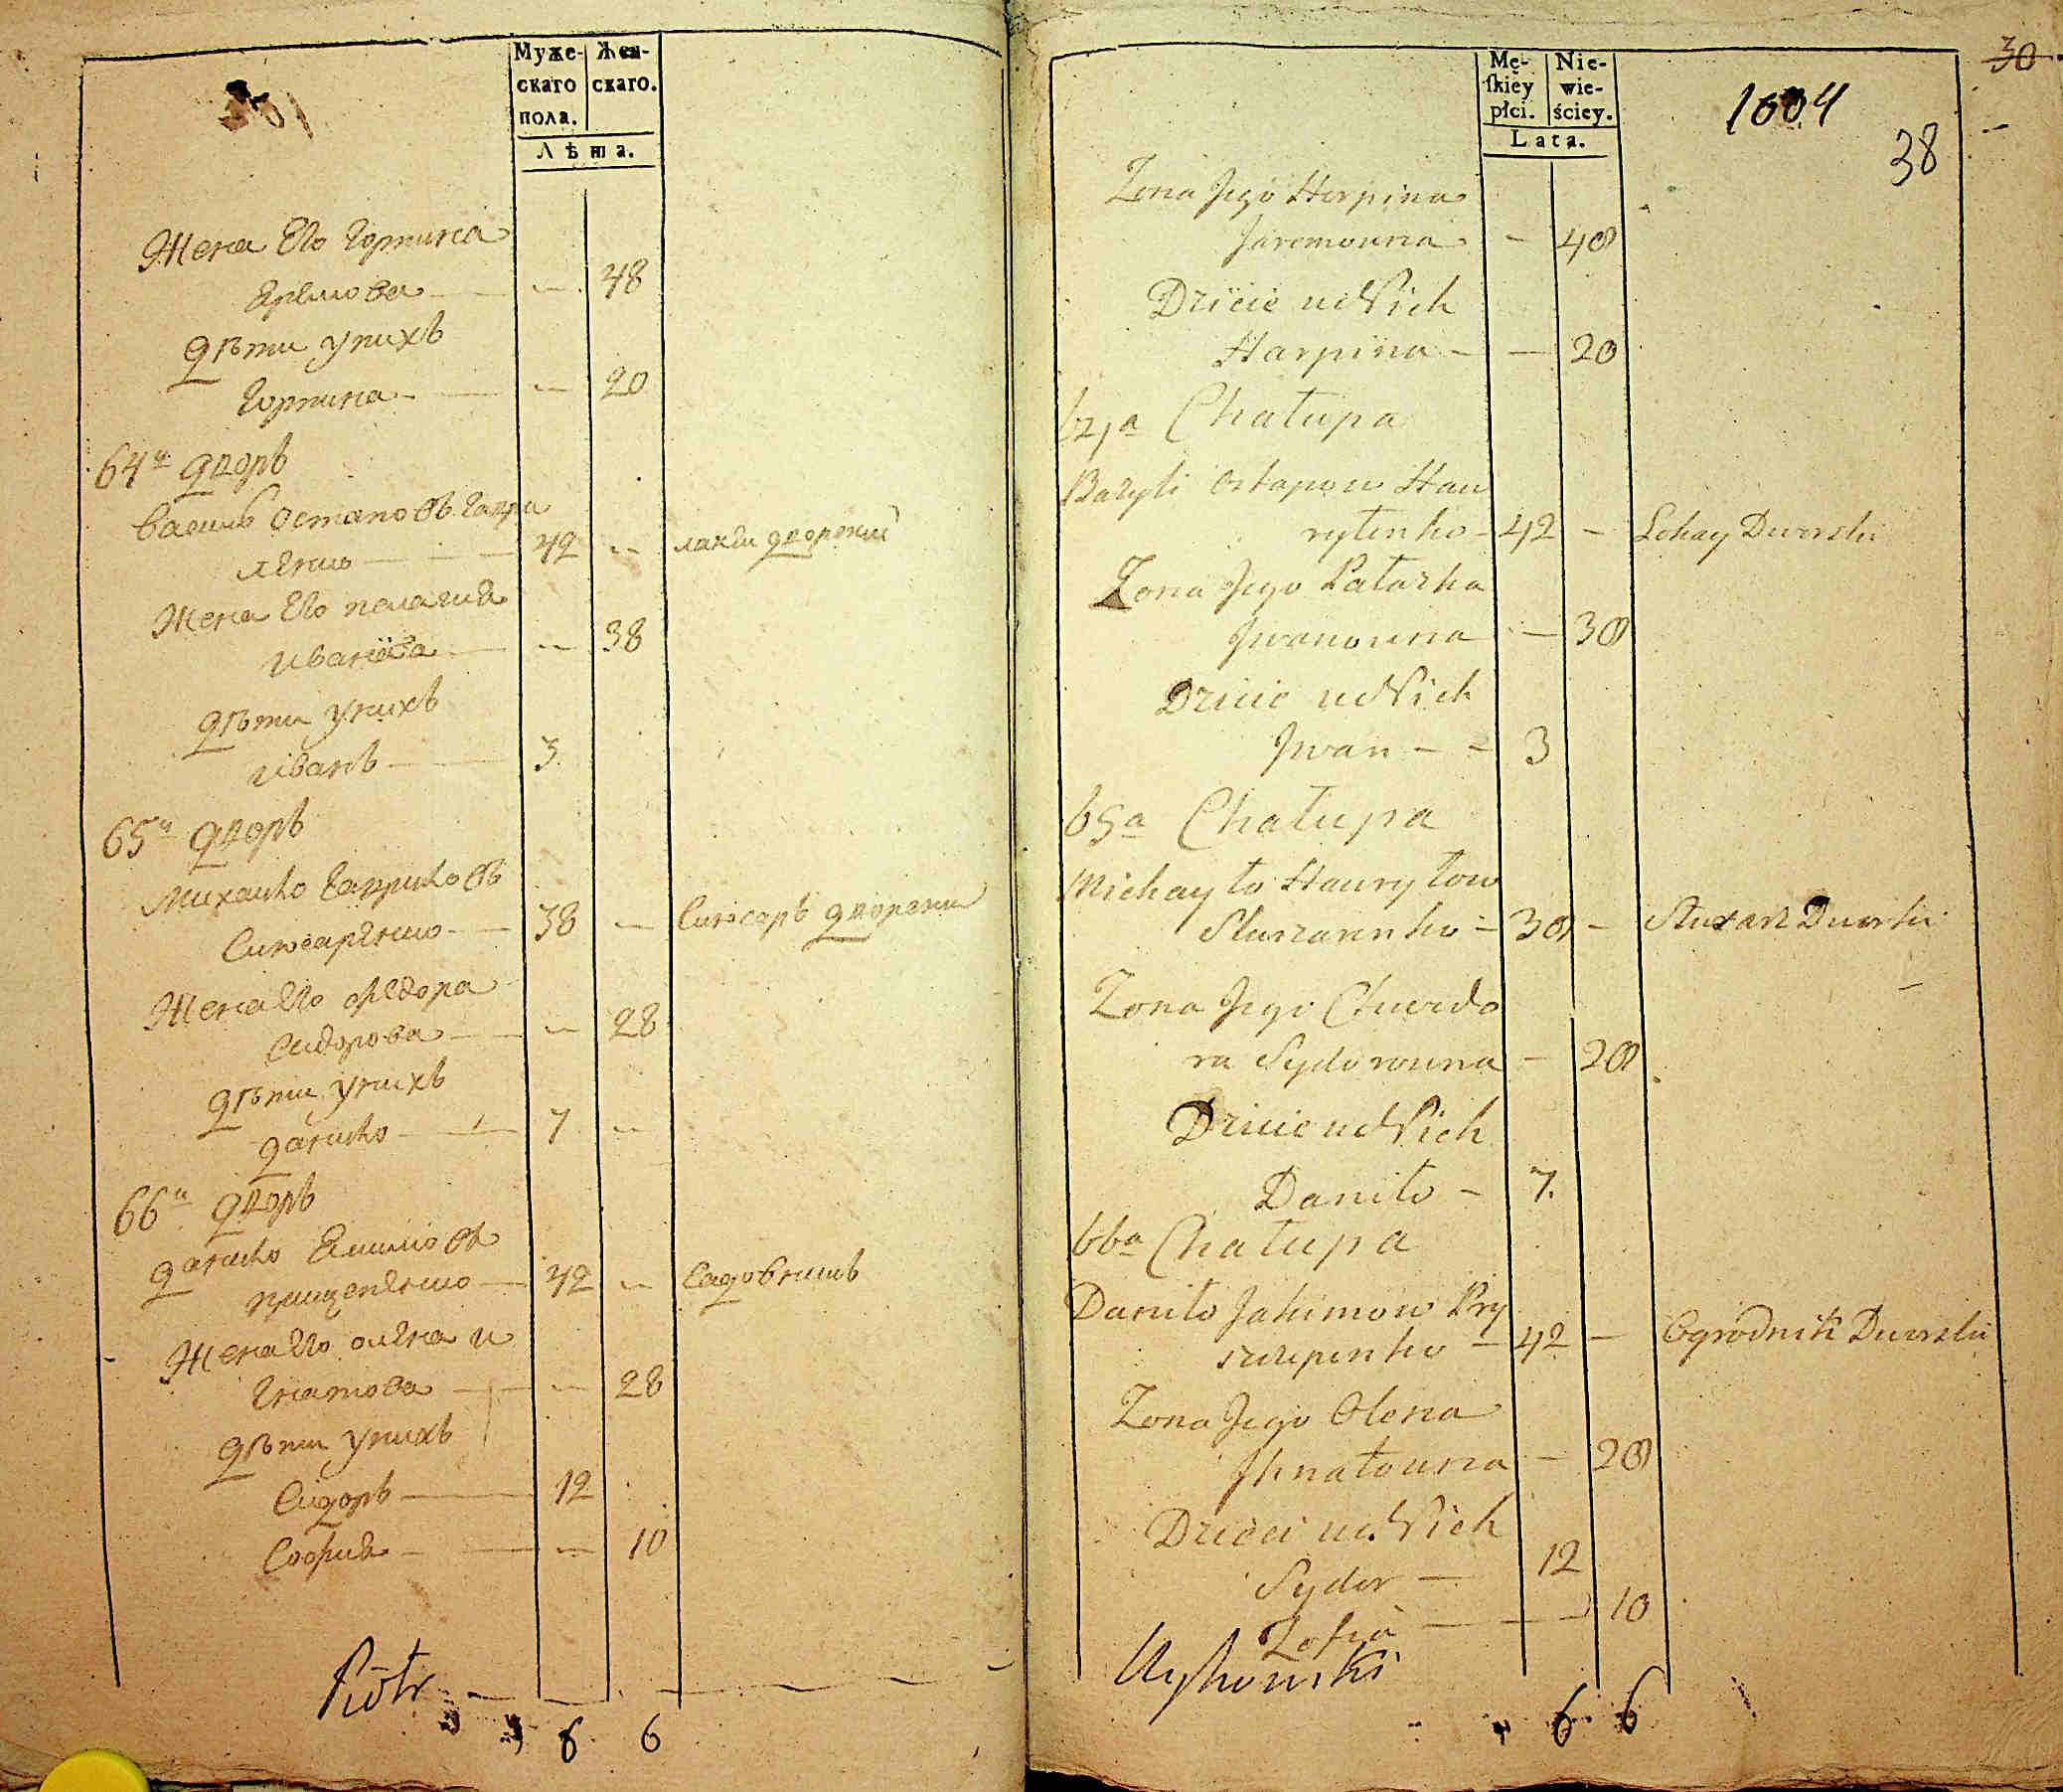 Муже-
скаго
пола.
Жен-
скаго.
Лѣта.
Жена Его Горпина
Яремова 48
Дѣти у нихъ
Горпина 20
64й дворъ
Василь Остаповъ Гаври
ленко 42 лакей дворский
Жена Его Пелагия
Иванова 38
Дѣти у нихъ
Иванъ 3
65й дворъ
Михайло Гавриловъ
Слюсаренко 38 Слюсаръ дворский
Жена Его Федора
Сидорова 28
Дѣти у нихъ
Данило 7
66й дворъ
Данило Екимовъ
Прищепенко 42 Садовникъ
Жена Его Олена И
гнатова 28
Дѣти у нихъ
Сидоръ 12
София 10
Piotr
6 6
Mę-
ſkiey
płci.
Nie-
wie-
ściey.
Lata.
30
1004
38
Zona Jego Horpina
Jaremowna - 48
Dzieie u Nich
Harpina - - 20
64a Chałupa
Bazyli Ostapow Haw
ryłenko - 42 - Lokay Dworski
Zona Jego Pałazka
Jwanowna - 38
Dzieie u Nich
Jwan - - 3
65a Chałupa
Michayło Hawryłow
Slusarenko - 38 - Slusarz Dworski
Zona Jego Chwedo
ra Sydorowna - 28
Dzieie u Nich
Daniło - 7.
66a Chałupa
Daniło Jakimow Pry
szczepenko - 42 - Ogrodnik Dworski
Zona Jego Olena
Jhnatowna - 28
Dzieci u Nich
Sydor - 12
Zofia - 10
6 6